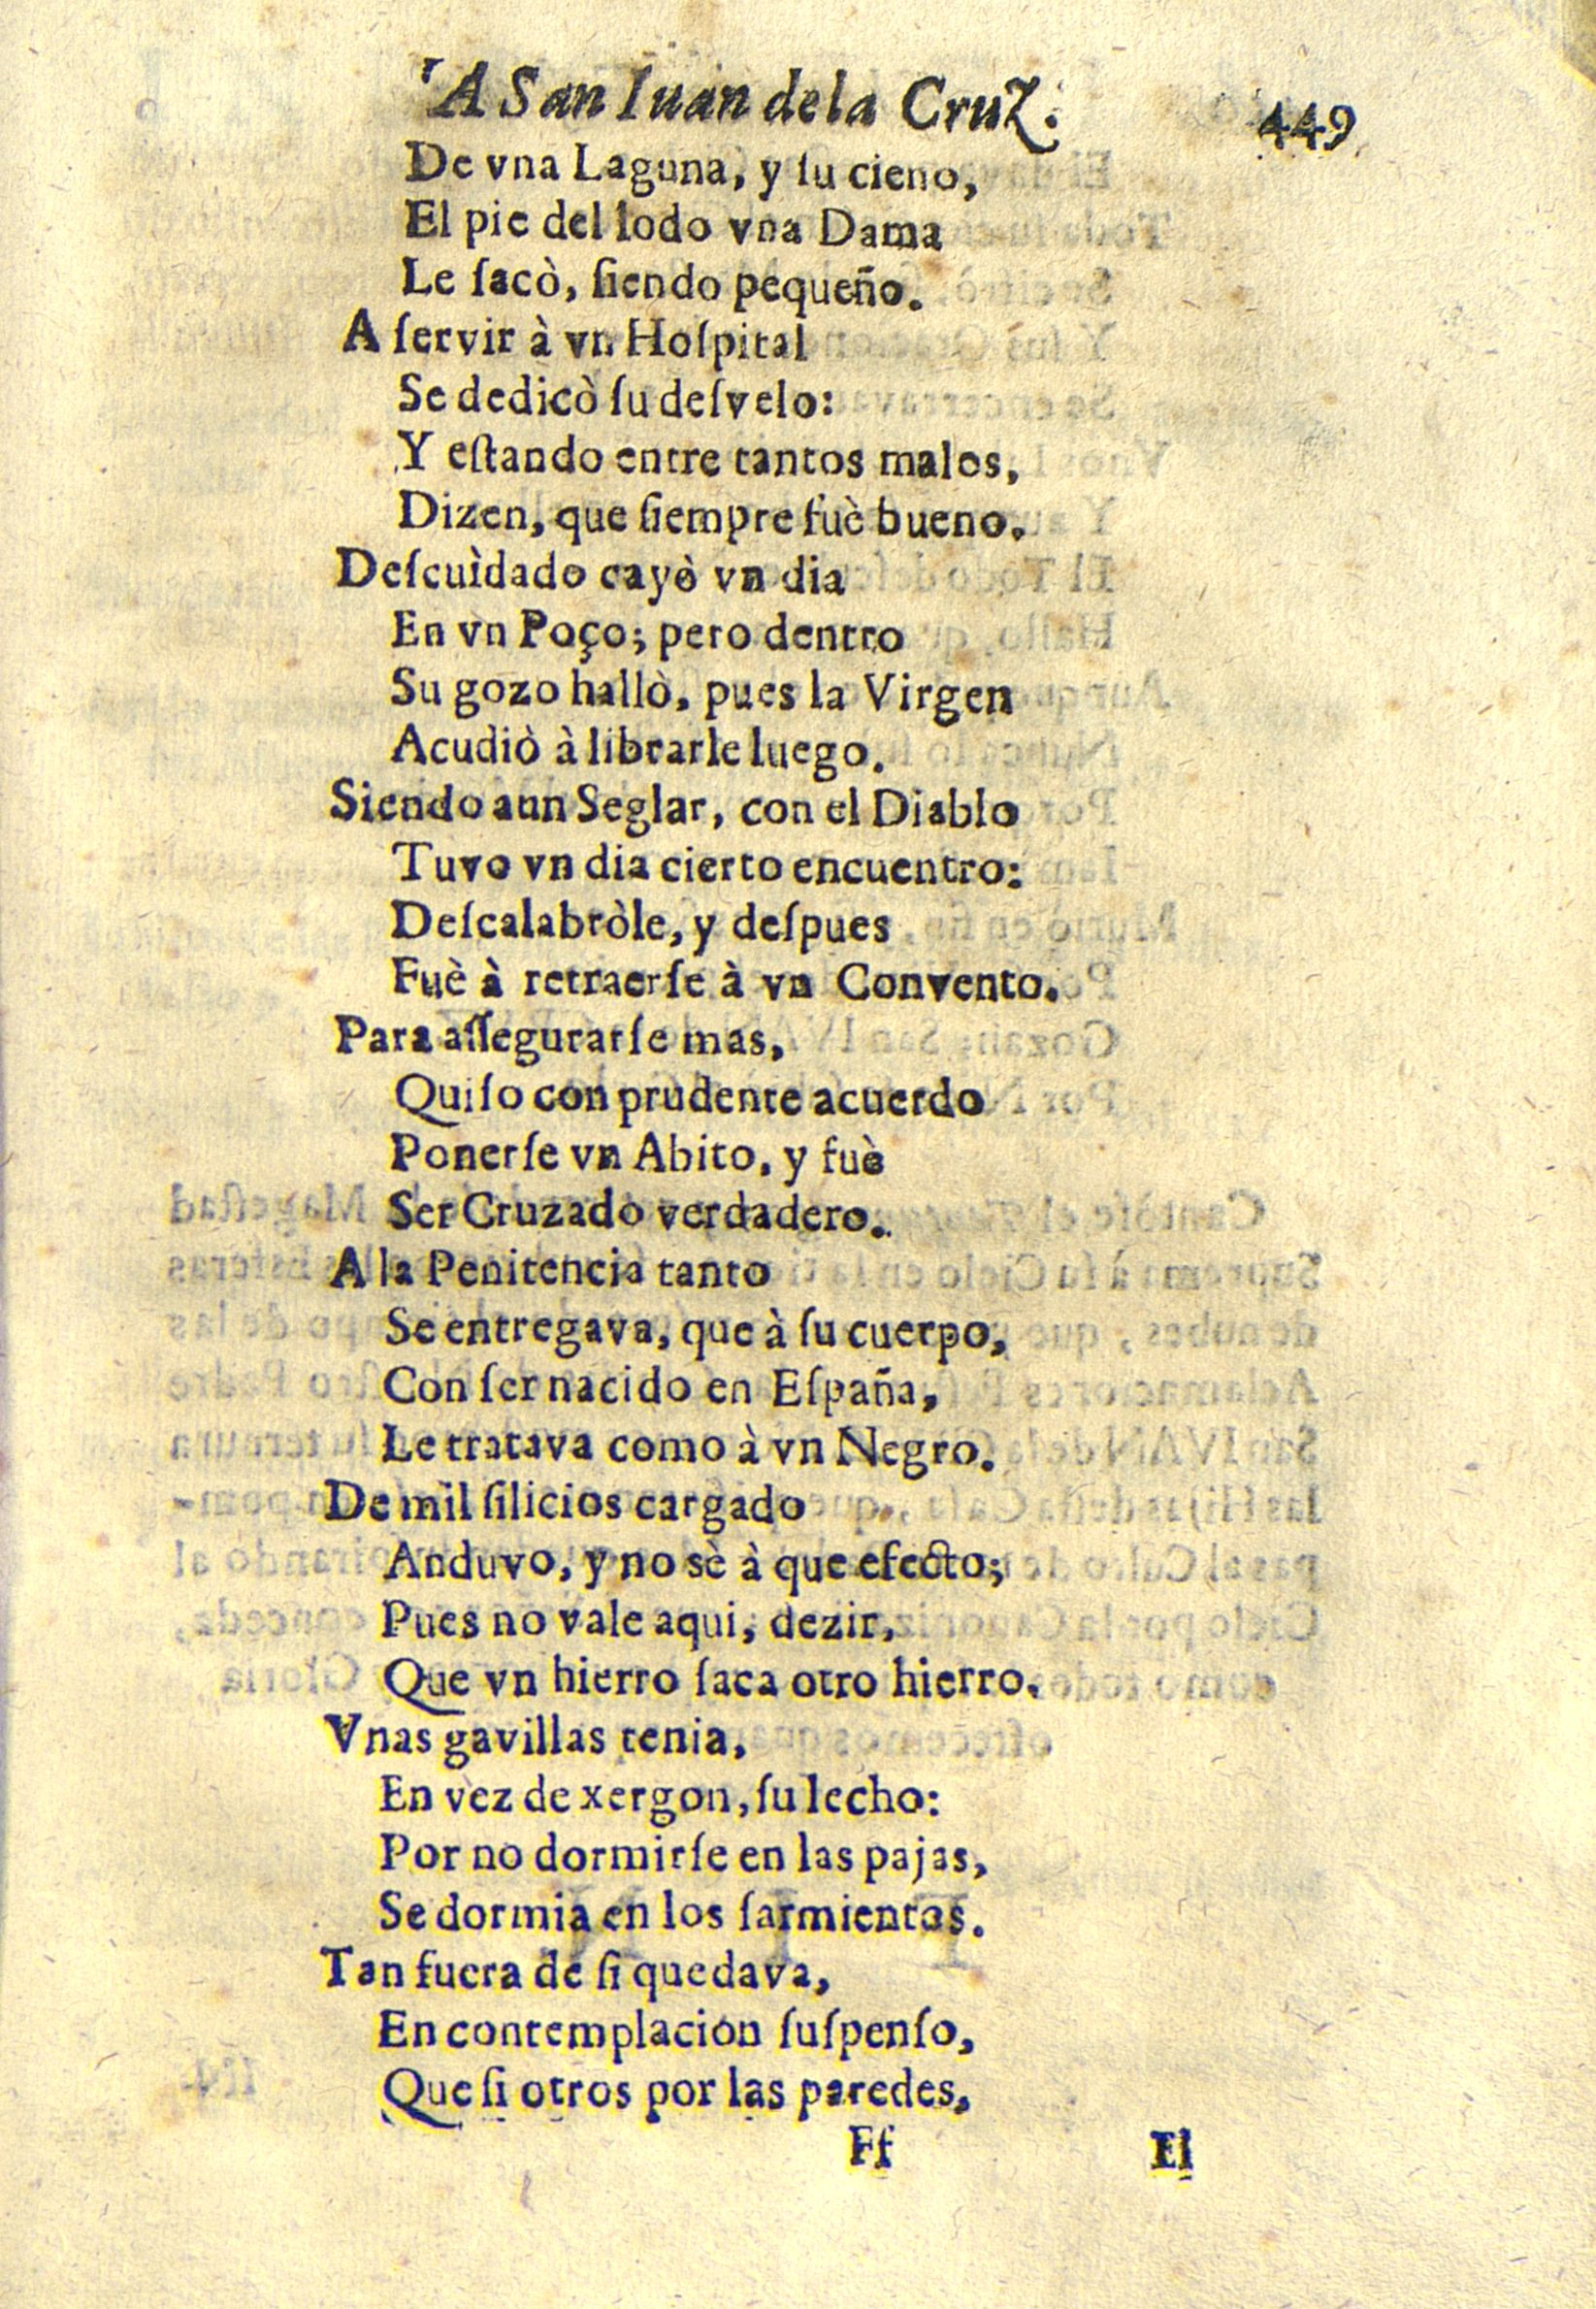 A San Iuan de la Cruz. 449
De vna Laguna, y ſu cieno,
El pie del lodo vna Dama
Le ſacò, ſiendo pequeño.
A ſervir à vn Hoſpital
Se dedicò ſu deſvelo:
Y eſtando entre tantos malos,
Dizen, que ſiempre fuè bueno.
Deſcuìdado cayò vn dia
En vn Poço; pero dentro
Su gozo hallò, pues la Virgen
Acudiò à librarle luego.
Siendo aun Seglar, con el Diablo
Tuvo vn dia cierto encuentro:
Deſcalabròle, y deſpues
Fuè à retraerſe à vn Convento.
Para aſſegurarſe mas,
Quiſo con prudente acuerdo
Ponerſe vn Abito, y fuè
Ser Cruzado verdadero.
A la Penitencia tanto
Se entregava, que à ſu cuerpo,
Con ſer nacido en Eſpaña,
Le tratava como à vn Negro.
De mil ſilicios cargado
Anduvo, y no sè à que efecto;
Pues no vale aqui, dezir,
Que vn hierro ſaca otro hierro.
Vnas gavillas tenia,
En vez de xergon, ſu lecho:
Por no dormirſe en las pajas,
Se dormia en los ſarmientos.
Tan fuera de ſi quedava,
En contemplacion ſuſpenſo,
Que ſi otros por las paredes,
Ff El